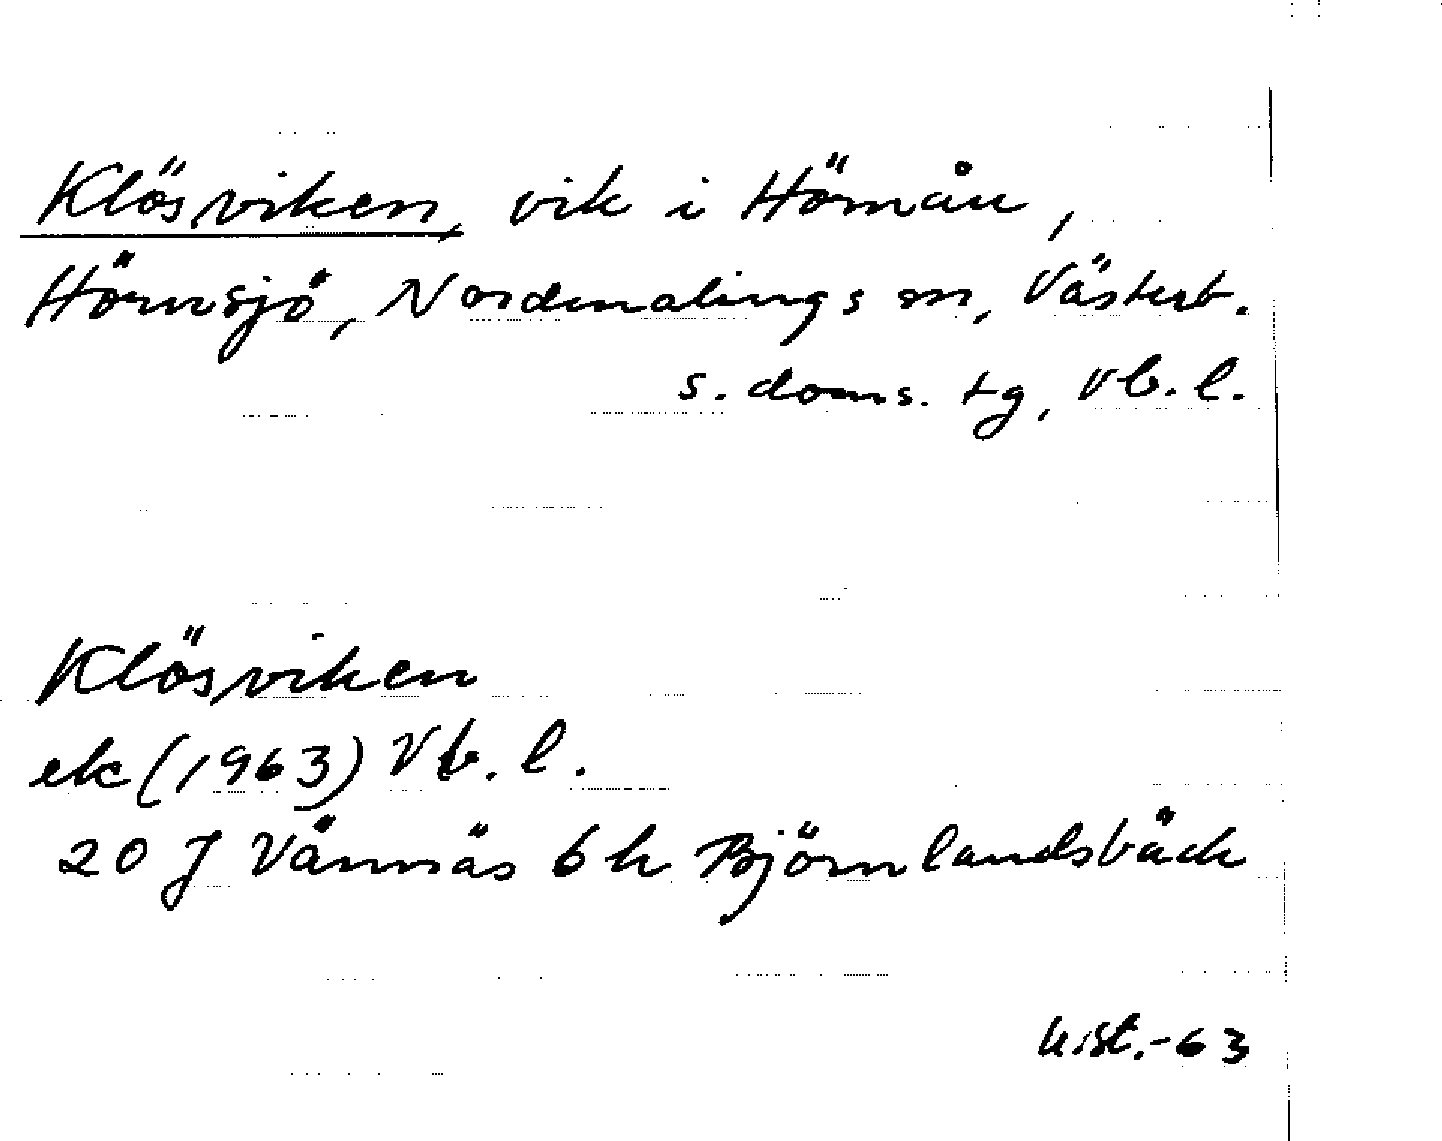 Klösviken, vik i Hörnån,
Hörnsjö, Nordmalings sn, Västerb.
s. doms. tg, Vb. l.
Klösviken
ek (1963) Vb. l.
20 J Vännäs 6 h Björnlandsbäck
hist.-63